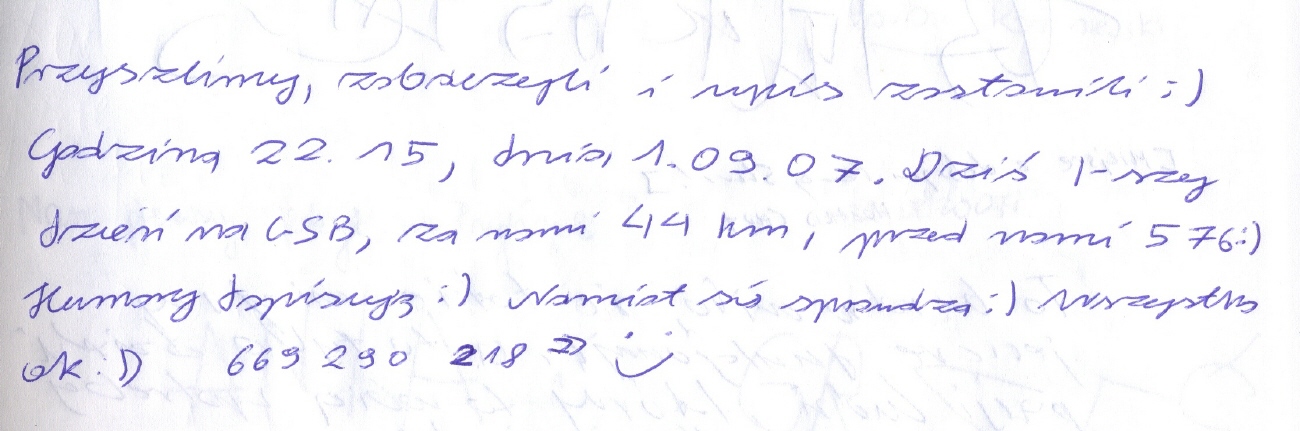 Przyszlimy, zobaczyli i wpis zostawili :)
Godzina 22.15, dnia, 1.09.07. Dziś 1-szy
dzień na GSB, za nami 44 km, przed nami 576 :)
Humory dopisują :) Namiot się sprawdza :) Wszystko
ok :D 669 290 218 => :)